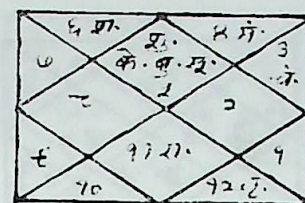 ६ श. शु. ४ मं.
७ के. बु. सू. ३
८ ५ २
९ ११ रा. १
१० १२